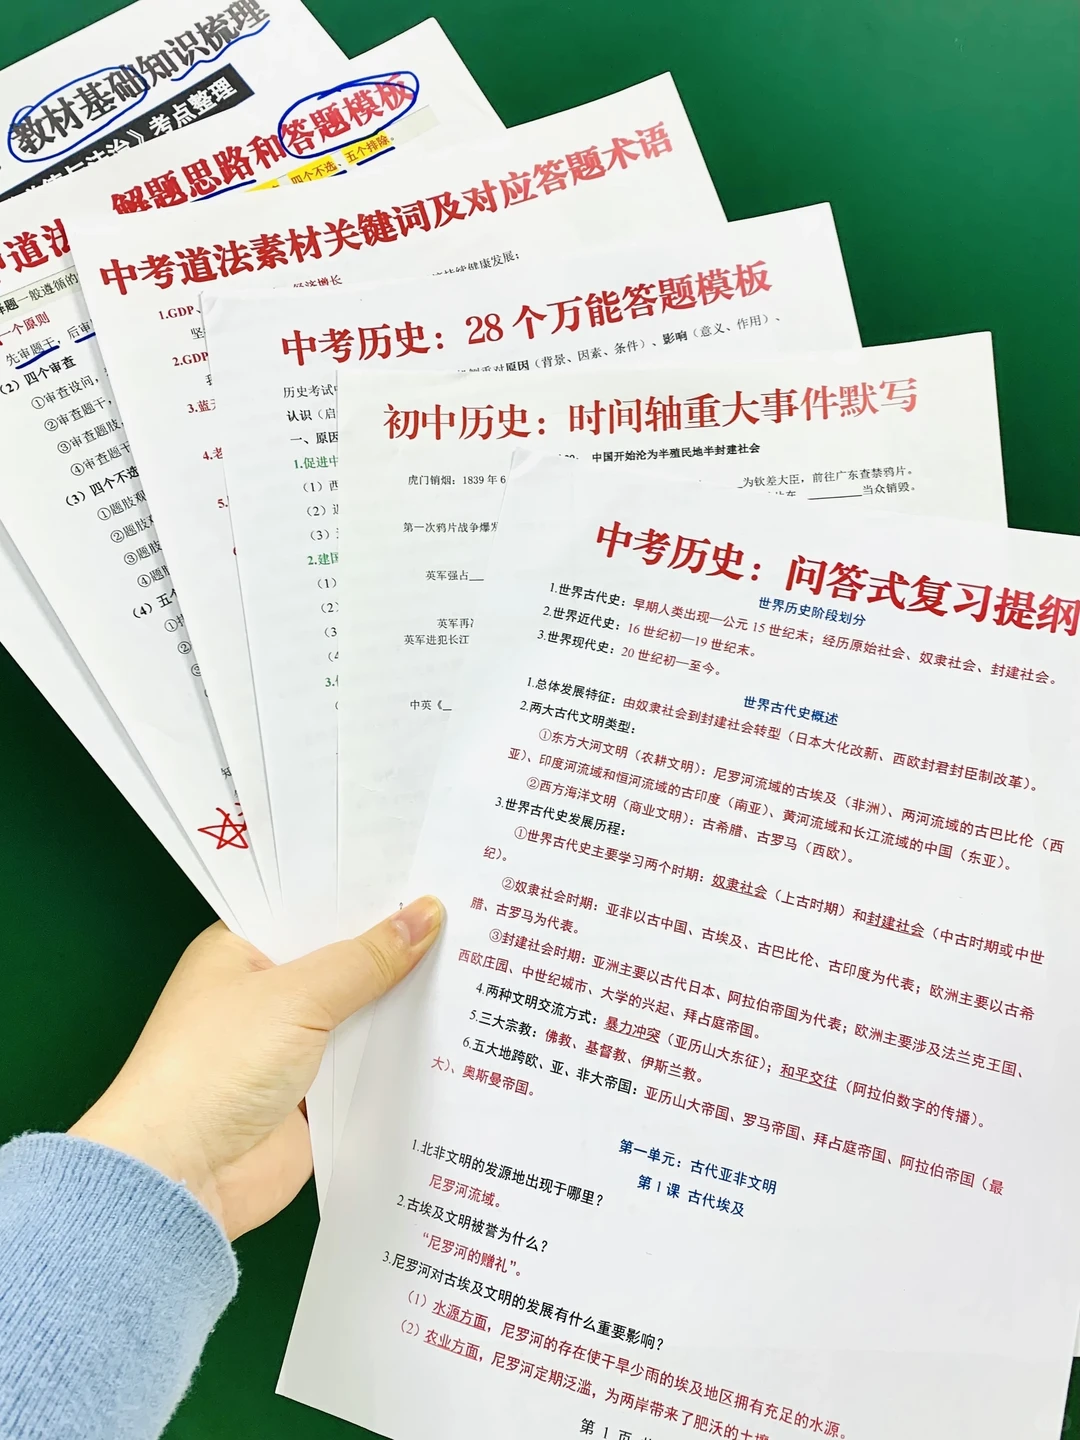 教材基础知识梳理
》考点整理
解题思路和答题模板
四个不选、五个排除。
道法
择题一般遵循的
一个原则
先审题干，后审
（2）四个审查
①审查设问，
②审查题干，
③审查题肢
④审查题干
（3）四个不选
①题肢观
②题肢
③题肢
④题肢
（4）五个
中考道法素材关键词及对应答题术语
经济增长
持续健康发展；
1.GDP、
坚
2.GDP
3.蓝天
4.老
5.
中考历史：28 个万能答题模板
历史考试中
对原因（背景、因素、条件）、影响（意义、作用）、
认识（启
一、原因
1.促进中
（1）西
（2）
（3）
2.建国
（1）
（2）
（3
（4
3.
初中历史：时间轴重大事件默写
中国开始沦为半殖民地半封建社会
虎门销烟：1839 年 6
为钦差大臣，前往广东查禁鸦片。
当众销毁。
第一次鸦片战争爆发
英军强占
英军再
英军进犯长江
中英《
中考历史：问答式复习提纲
世界历史阶段划分
1.世界古代史：早期人类出现—公元 15 世纪末；经历原始社会、奴隶社会、封建社会。
2.世界近代史：16 世纪初—19 世纪末。
3.世界现代史：20 世纪初—至今。
世界古代史概述
1.总体发展特征：由奴隶社会到封建社会转型（日本大化改新、西欧封君封臣制改革）。
2.两大古代文明类型：
①东方大河文明（农耕文明）：尼罗河流域的古埃及（非洲）、两河流域的古巴比伦（西
亚）、印度河流域和恒河流域的古印度（南亚）、黄河流域和长江流域的中国（东亚）。
②西方海洋文明（商业文明）：古希腊、古罗马（西欧）。
3.世界古代史发展历程：
①世界古代史主要学习两个时期：奴隶社会（上古时期）和封建社会（中古时期或中世
纪）。
②奴隶社会时期：亚非以古中国、古埃及、古巴比伦、古印度为代表；欧洲主要以古希
腊、古罗马为代表。
③封建社会时期：亚洲主要以古代日本、阿拉伯帝国为代表；欧洲主要涉及法兰克王国、
西欧庄园、中世纪城市、大学的兴起、拜占庭帝国。
4.两种文明交流方式：暴力冲突（亚历山大东征）；和平交往（阿拉伯数字的传播）。
5.三大宗教：佛教、基督教、伊斯兰教。
6.五大地跨欧、亚、非大帝国：亚历山大帝国、罗马帝国、拜占庭帝国、阿拉伯帝国（最
大）、奥斯曼帝国。
第一单元：古代亚非文明
第 1 课 古代埃及
1.北非文明的发源地出现于哪里？
尼罗河流域。
2.古埃及文明被誉为什么？
“尼罗河的赠礼”。
3.尼罗河对古埃及文明的发展有什么重要影响？
（1）水源方面，尼罗河的存在使干旱少雨的埃及地区拥有充足的水源。
（2）农业方面，尼罗河定期泛滥，为两岸带来了肥沃的土壤
第 1 页